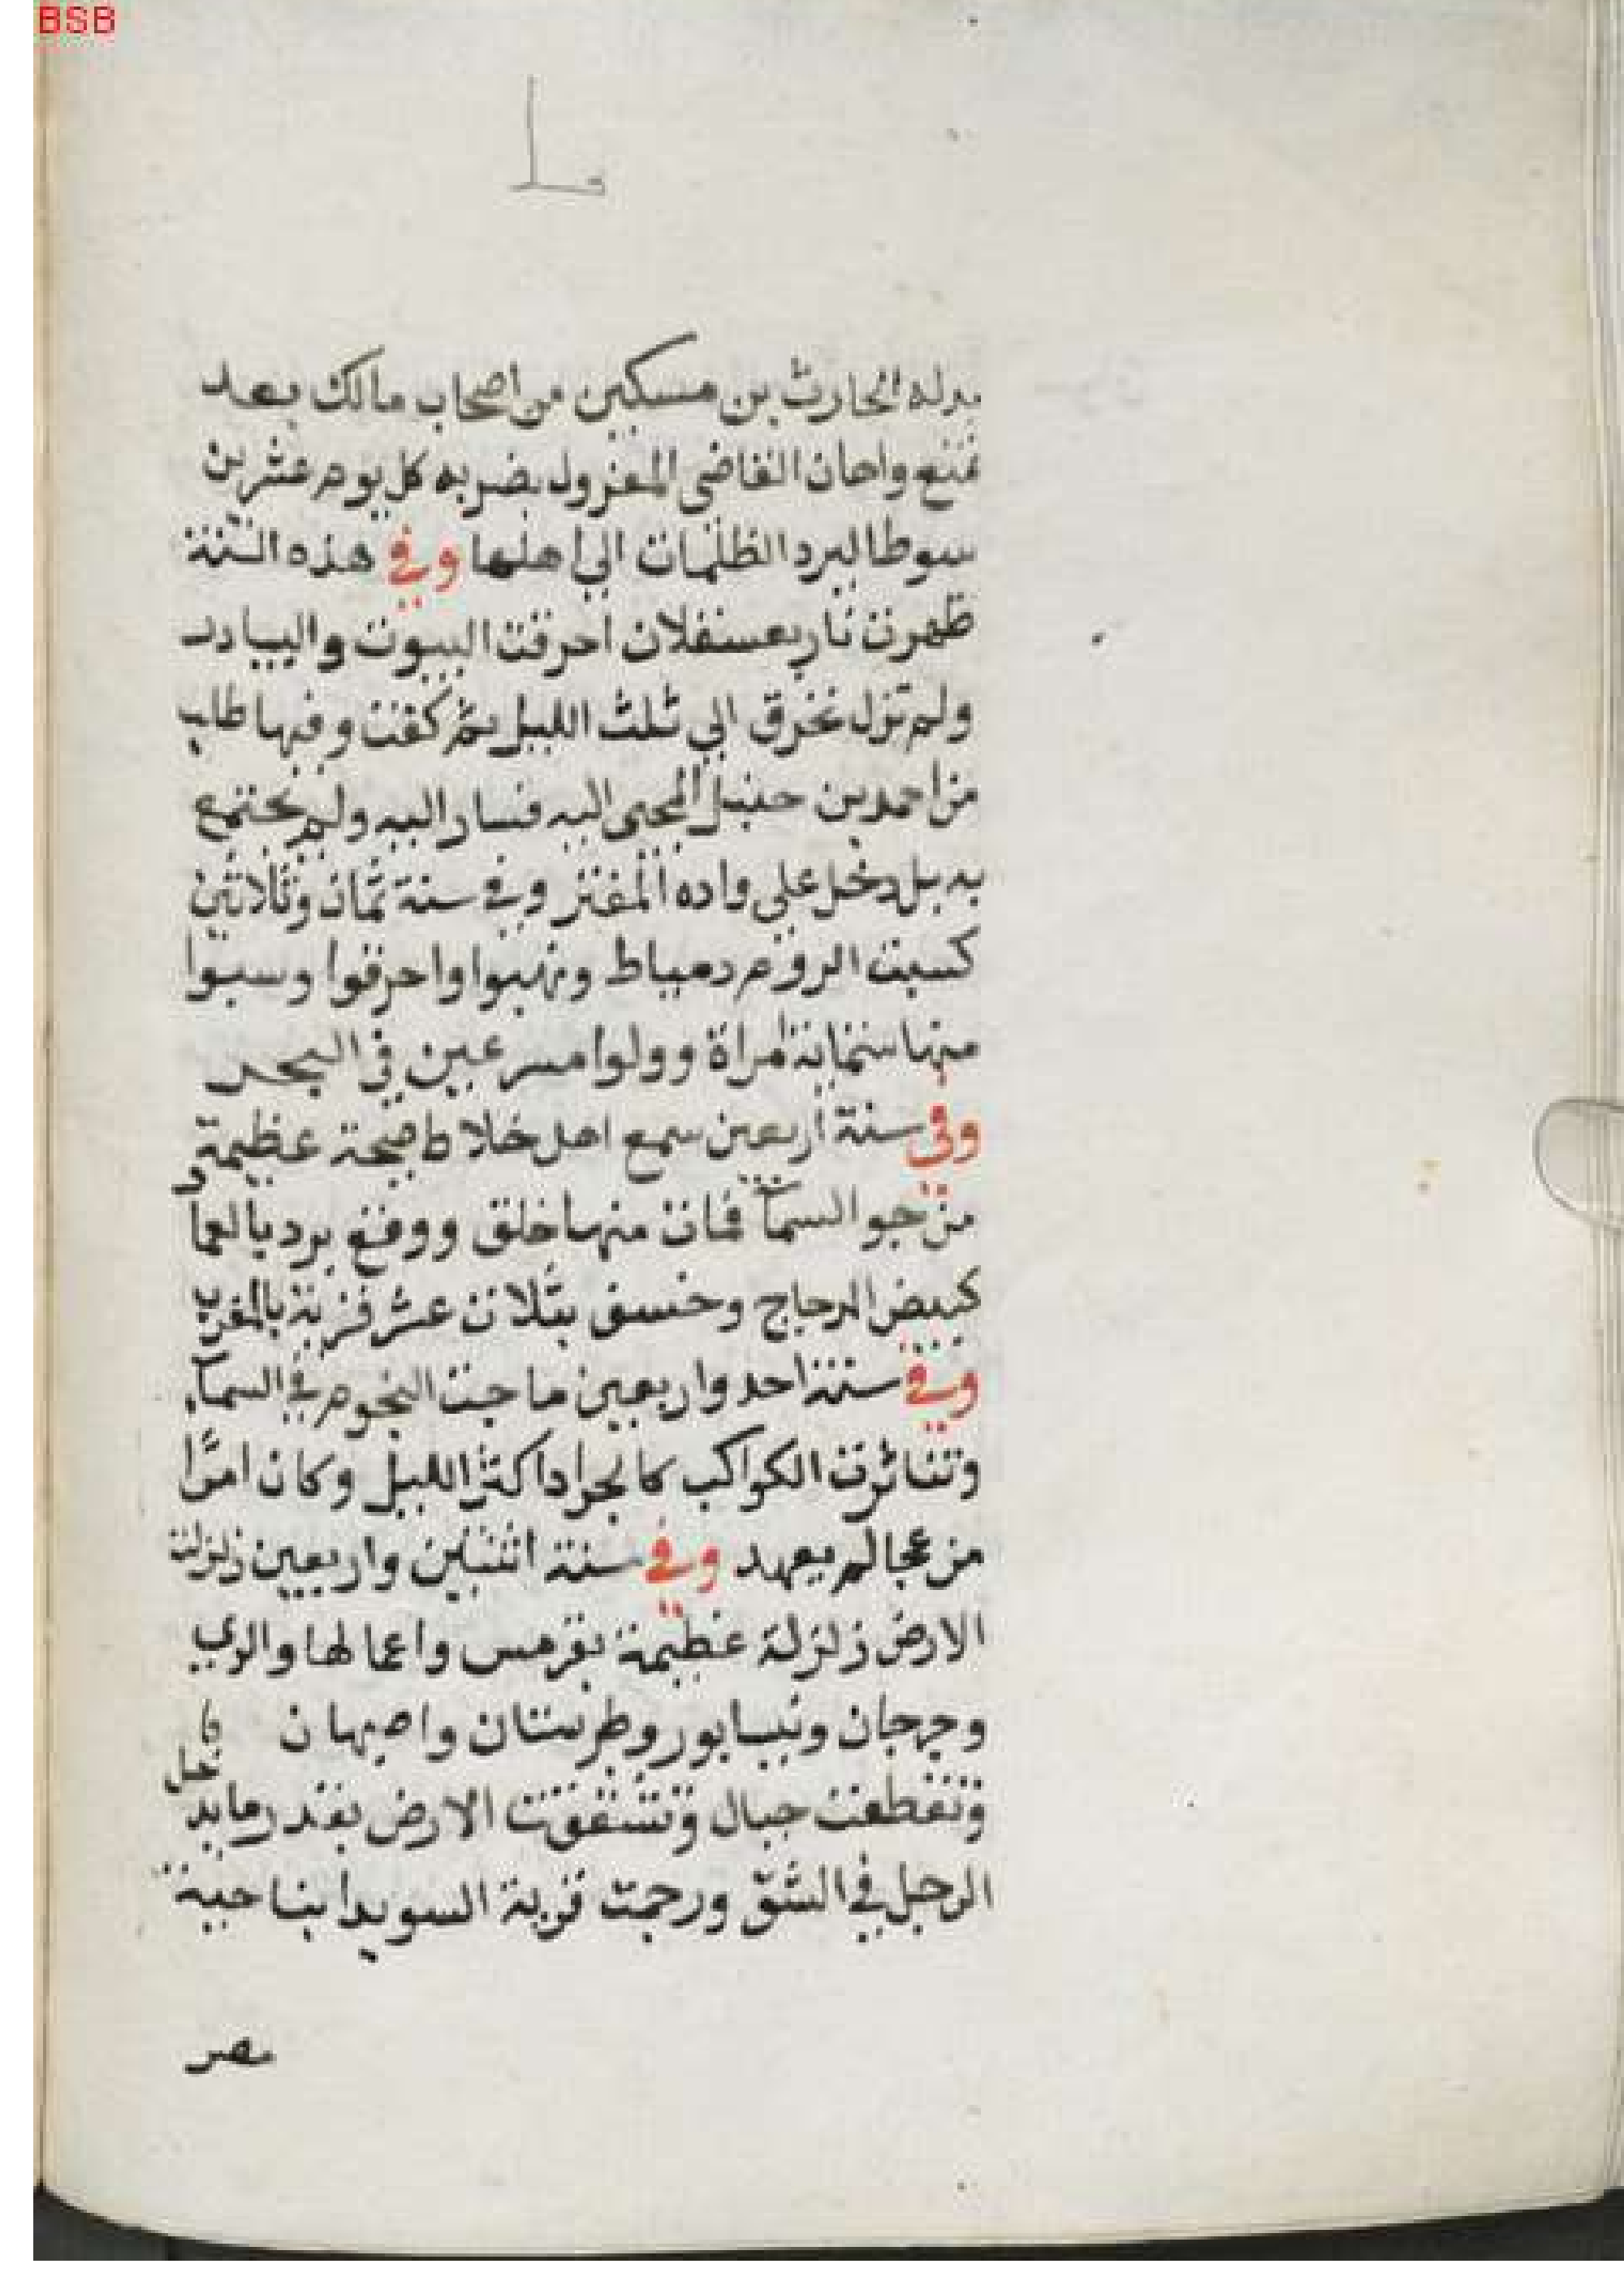 BSB
بدله الحارث بن مسكين من اصحاب مالك بعد
تمنع واهان القاضي المعزول بضربه كل يوم عشرين
سوطا ليرد الظلمات الي اهلها وفي هذه السنة
ظهرت نار بعسقلان احرقت البيوت والبيادر
ولم تزل تحرق الي ثلث الليل ثم كفت وفيها طلب
من احمد بن حنبل المجيى اليه فسار اليه ولم يجتمع
به بل دخل علي ولده المعتز وفي سنة ثمان وثلاثين
كسبت الروم دمياط ونهبوا واحرقوا وسبوا
منها ستماية امراة وولوا مسرعين في البحر
وفي سنة اربعين سمع اهل خلاط صيحة عظيمة
من جو السمآ فمات منها خلق ووقع برد بالعراق
كبيض الدجاج وخسف بثلاث عشر قرية بالمغرب
وفي سنة احد واربعين ماجت النجوم في السمآ
وتناثرت الكواكب كالجراد اكثر الليل وكان امرًا
مزعجا لم يعهد وفي سنة اثنتين واربعين زلزلت
الارض زلزلة عظيمة بقرمس واعمالها والري
وجرجان ونيسابور وطبرستان واصبهان
وتقطعت جبال وتشققت الارض بقدر ما يدخل
الرجل في الشق ورجمت قرية السويدا بناحية
مصر